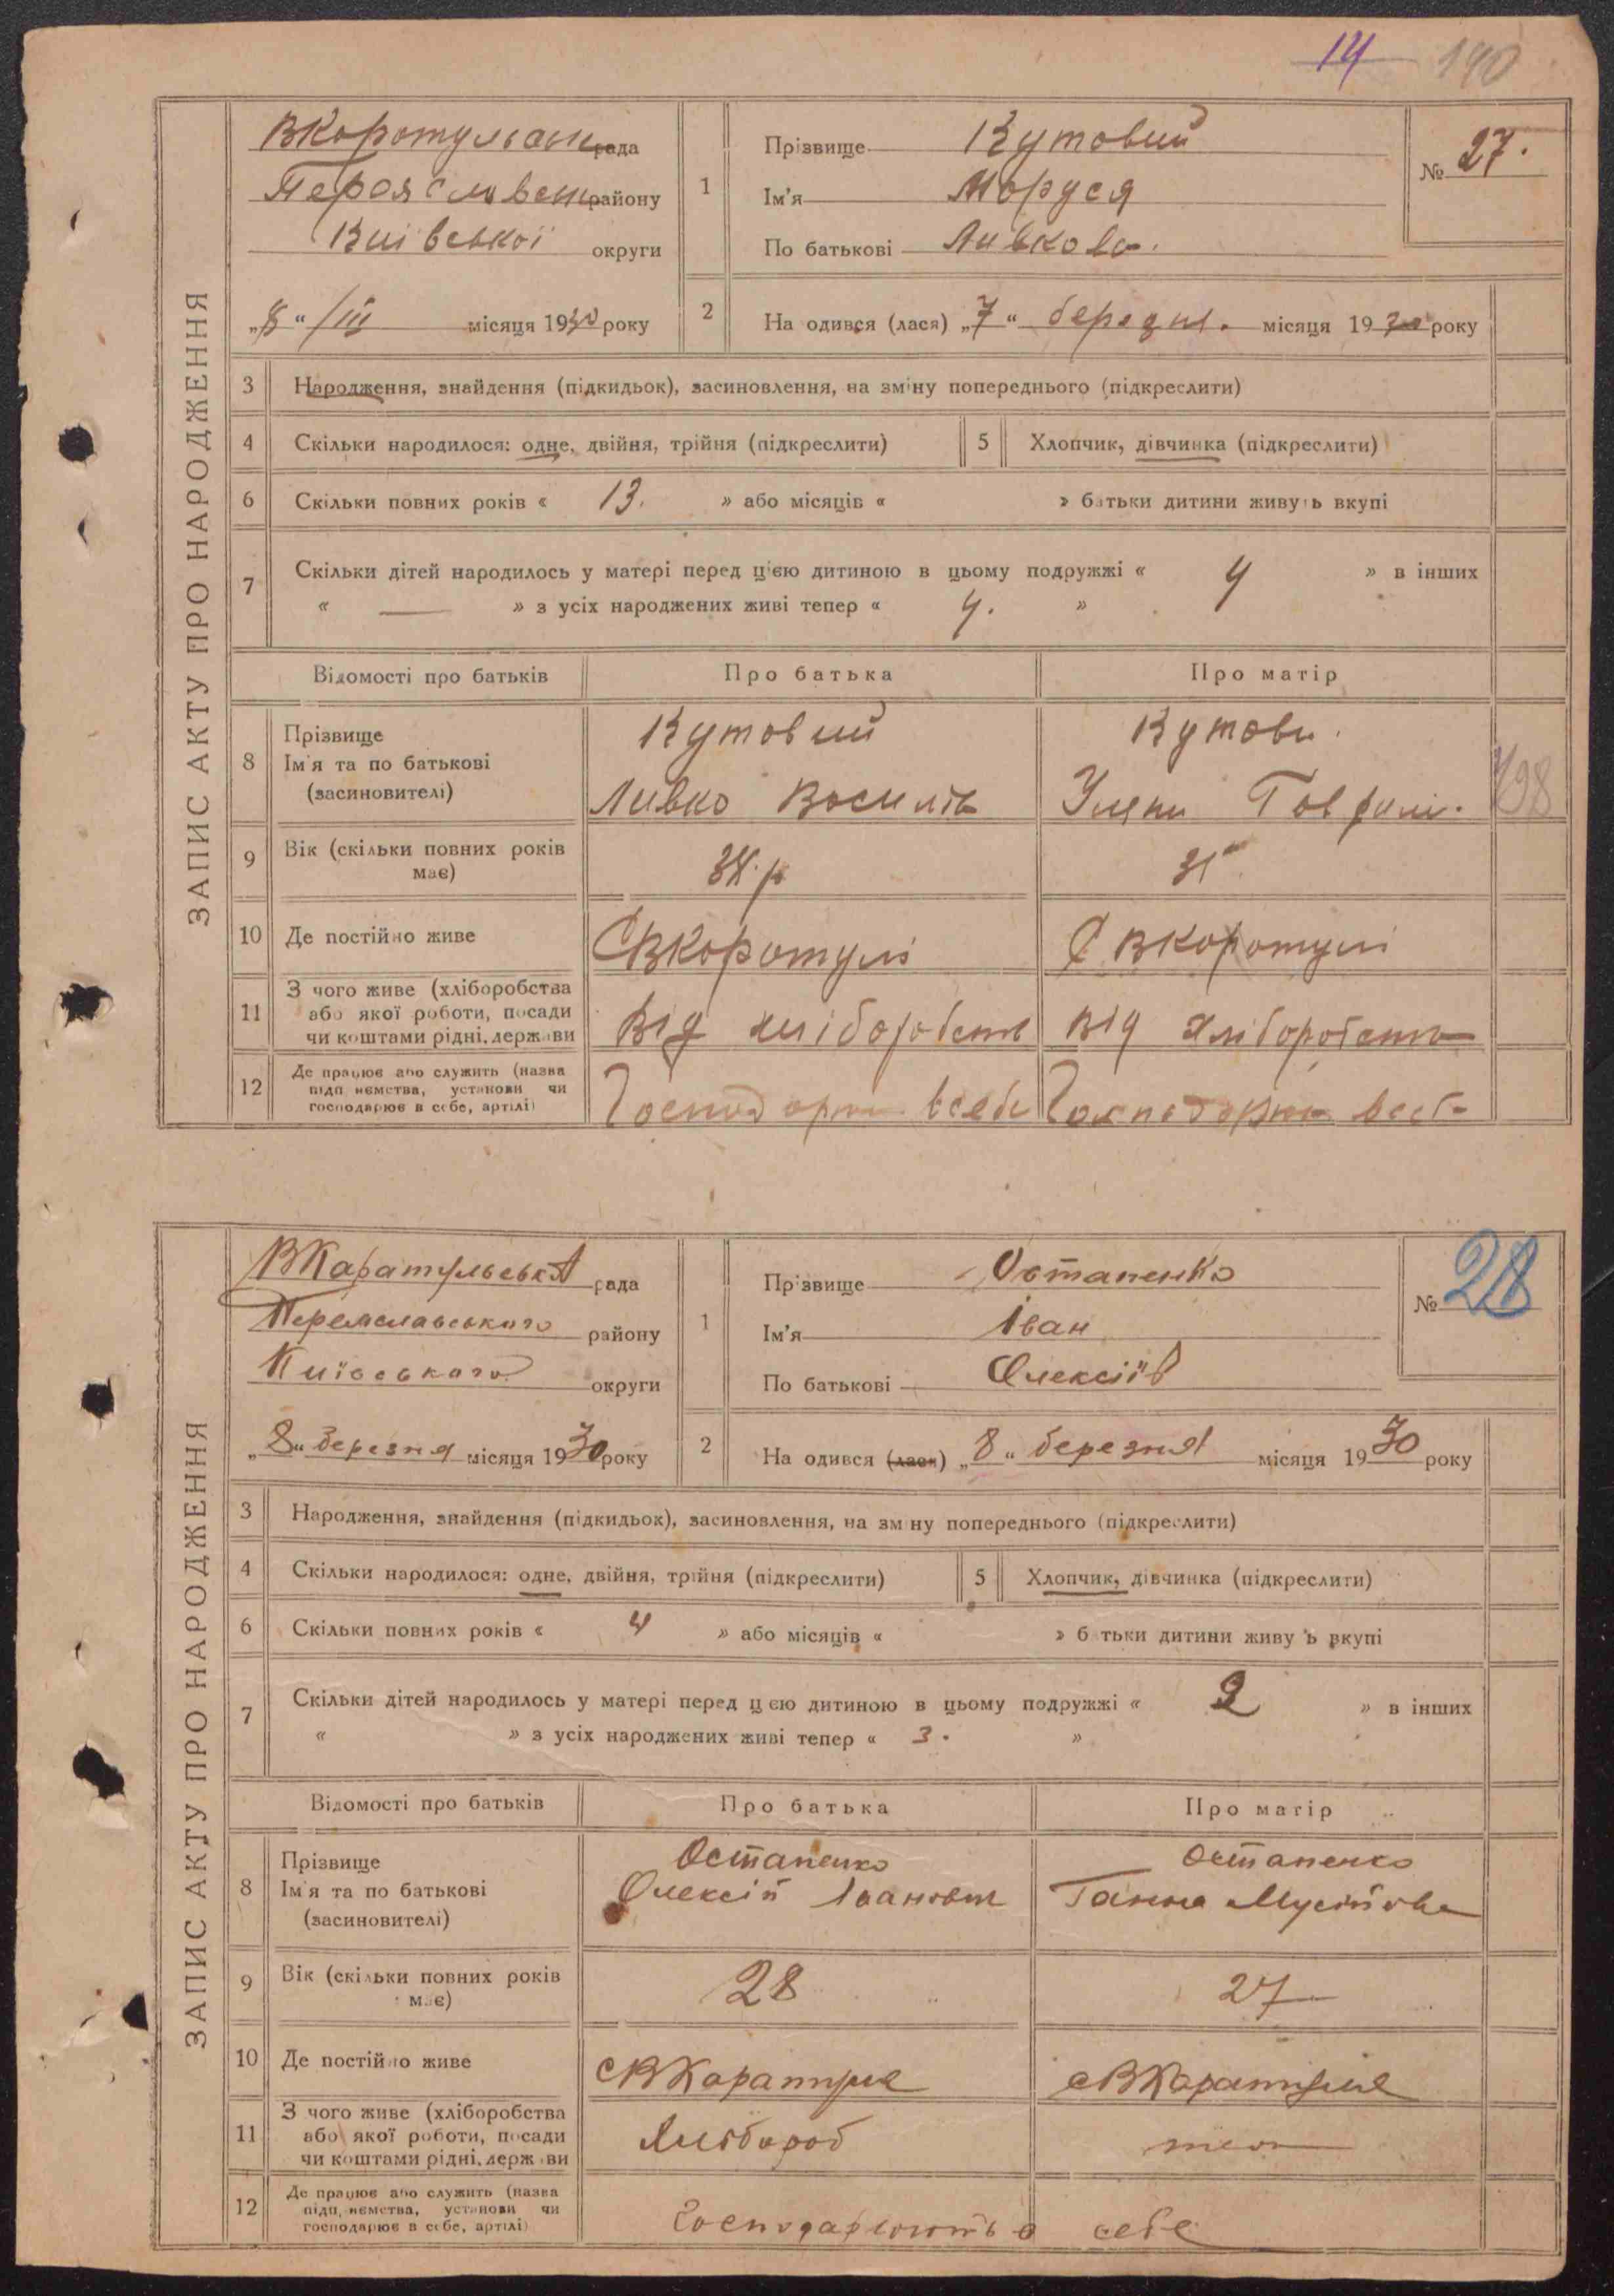 14 190
ЗАПИС АКТУ ПРО НАРОДЖЕННЯ
рада
району
Київської округи
„8“ /III місяця 1930 року
1
Прізвище Кутовий
Ім'я Моруся
По батькові Ливкова.
№ 27.
2
На одився (лася) „7“ березня місяця 1930 року
3 Народження, знайдення (підкидьок), засиновлення, на зміну попереднього (підкреслити)
4 Скільки народилося: одне, двійня, трійня (підкреслити) 5 Хлопчик, дівчинка (підкреслити)
6 Скільки повних років « 13. » або місяців « » батьки дитини живуть вкупі
7 Скільки дітей народилось у матері перед цією дитиною в цьому подружжі « 4 » в інших
« — » з усіх народжених живі тепер « 4. »
Відомості про батьків Про батька Про матір
8 Прізвище
Ім'я та по батькові
(засиновителі)
Кутовий
Ливко Василів
Кутова.
198
9 Вік (скільки повних років
має)
31
10 Де постійно живе
С ВКоротулі
С ВКоротулі
11 З чого живе (хліборобства
або якої роботи, посади
чи коштами рідні, держави
Від хліборобств
від хліборобства
12 Де працює або служить (назва
підп иємства, установи чи
господарює в себе, артілі)
ЗАПИС АКТУ ПРО НАРОДЖЕННЯ
ВКаратульська рада
Переяславського району
Київського округи
„8“ березня місяця 1930 року
1
Прізвище Остапенко
Ім'я Іван
По батькові Олексіїв
№ 28
2
На одився (лася) „8“ березня місяця 1930 року
3 Народження, знайдення (підкидьок), засиновлення, на зміну попереднього (підкреслити)
4 Скільки народилося: одне, двійня, трійня (підкреслити) 5 Хлопчик, дівчинка (підкреслити)
6 Скільки повних років « 4 » або місяців « » батьки дитини живуть вкупі
7 Скільки дітей народилось у матері перед цією дитиною в цьому подружжі « 2 » в інших
« » з усіх народжених живі тепер « 3. »
Відомості про батьків Про батька Про матір
8 Прізвище
Ім'я та по батькові
(засиновителі)
Остапенко
Олексій Іванович
Остапенко
Ганна Мусіївна
9 Вік (скільки повних років
має)
28
27
10 Де постійно живе
с ВКаратуля
с ВКаратуля
11 З чого живе (хліборобства
або якої роботи, посади
чи коштами рідні, держави
Хлібороб
12 Де працює або служить (назва
підп иємства, установи чи
господарює в себе, артілі)
Господарюють в себе